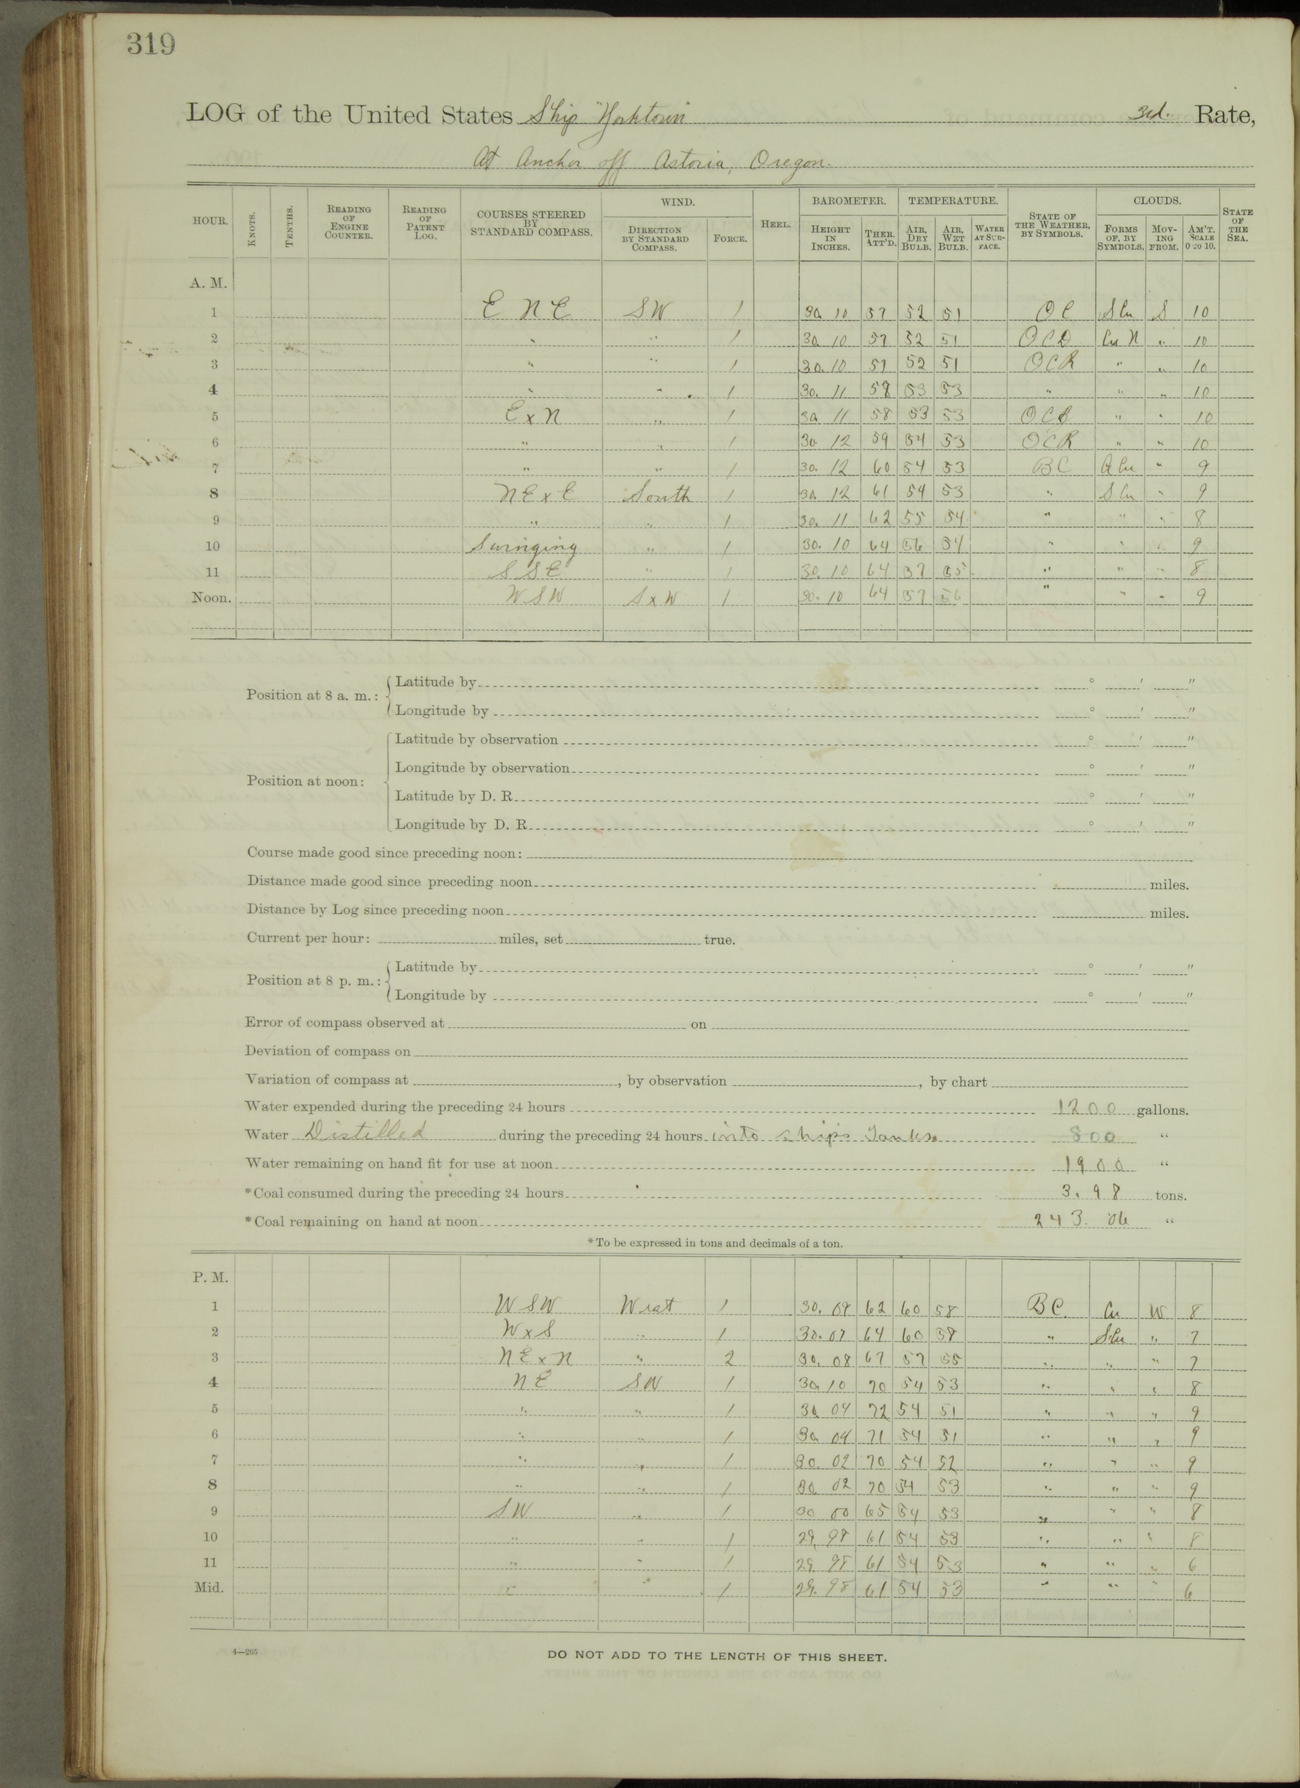 319
LOG of the United States Ship "Yorktown" 3rd. Rate,
At Anchor off Astoria, Oregon.
HOUR. KNOTS. TENTHS. READING OF ENGINE COUNTER. READING OF PATENT LOG. COURSES STEERED BY STANDARD COMPASS. WIND. DIRECTION BY STANDARD COMPASS. FORCE. HEEL. BAROMETER. HEIGHT IN INCHES. THER. ATT'D. TEMPERATURE. AIR, DRY BULB. AIR, WET BULB. WATER AT SURFACE. STATE OF THE WEATHER, BY SYMBOLS. CLOUDS. FORMS OF, BY SYMBOLS. MOVING FROM. AM'T. SCALE 0 TO 10. STATE OF THE SEA.
A. M.
1 E N E SW 1 30 10 57 52 51 OC S Cu S 10
2 " " 1 30 10 57 52 51 OCD Cu N " 10
3 " " 1 30.10 57 52 51 OCR " " 10
4 " " 1 30. 11 58 53 53 " " " 10
5 E x N " 1 30 11 58 53 53 OCD " " 10
6 " " 1 30 12 59 54 53 OCR " " 10
7 " " 1 30. 12 60 54 53 BC A Cu " 9
8 NE x E South 1 30 12 61 54 53 " S Cu " 9
9 " " 1 30. 11 62 55 54 " " " 8
10 Swinging " 1 30. 10 64 56 54 " " " 9
11 S S E " 1 30. 10 64 57 55 " " " 8
Noon. W S W S x W 1 30. 10 64 57 56 " " " 9
Position at 8 a. m.: Latitude by ° ′ ″
Longitude by ° ′ ″
Position at noon: Latitude by observation ° ′ ″
Longitude by observation ° ′ ″
Latitude by D. R. ° ′ ″
Longitude by D. R. ° ′ ″
Course made good since preceding noon:
Distance made good since preceding noon miles.
Distance by Log since preceding noon miles.
Current per hour: miles, set true.
Position at 8 p. m.: Latitude by ° ′ ″
Longitude by ° ′ ″
Error of compass observed at on
Deviation of compass on
Variation of compass at , by observation , by chart
Water expended during the preceding 24 hours 1200 gallons.
Water Distilled during the preceding 24 hours into ships Tanks. 800 "
Water remaining on hand fit for use at noon 1900 "
*Coal consumed during the preceding 24 hours 3.98 tons.
*Coal remaining on hand at noon 243. 06 "
*To be expressed in tons and decimals of a ton.
P. M.
1 W S W West 1 30. 09 62 60 58 BC. Cu W 8
2 W x S " 1 30.07 64 60 58 " S Cu " 7
3 NE x N " 2 30. 08 67 57 55 " " " 7
4 NE SW 1 30 10 70 54 53 " " " 8
5 " " 1 30 04 72 54 51 " " " 9
6 " " 1 30 04 71 54 51 " " " 9
7 " " 1 30. 02 70 54 52 " " " 9
8 " " 1 30. 02 70 54 53 " " " 9
9 SW " 1 30 00 65 54 53 " " " 8
10 " " 1 29, 98 61 54 53 " " " 8
11 " " 1 29. 98 61 54 53 " " " 6
Mid. " " 1 29. 98 61 54 53 " " " 6
4—205
DO NOT ADD TO THE LENGTH OF THIS SHEET.